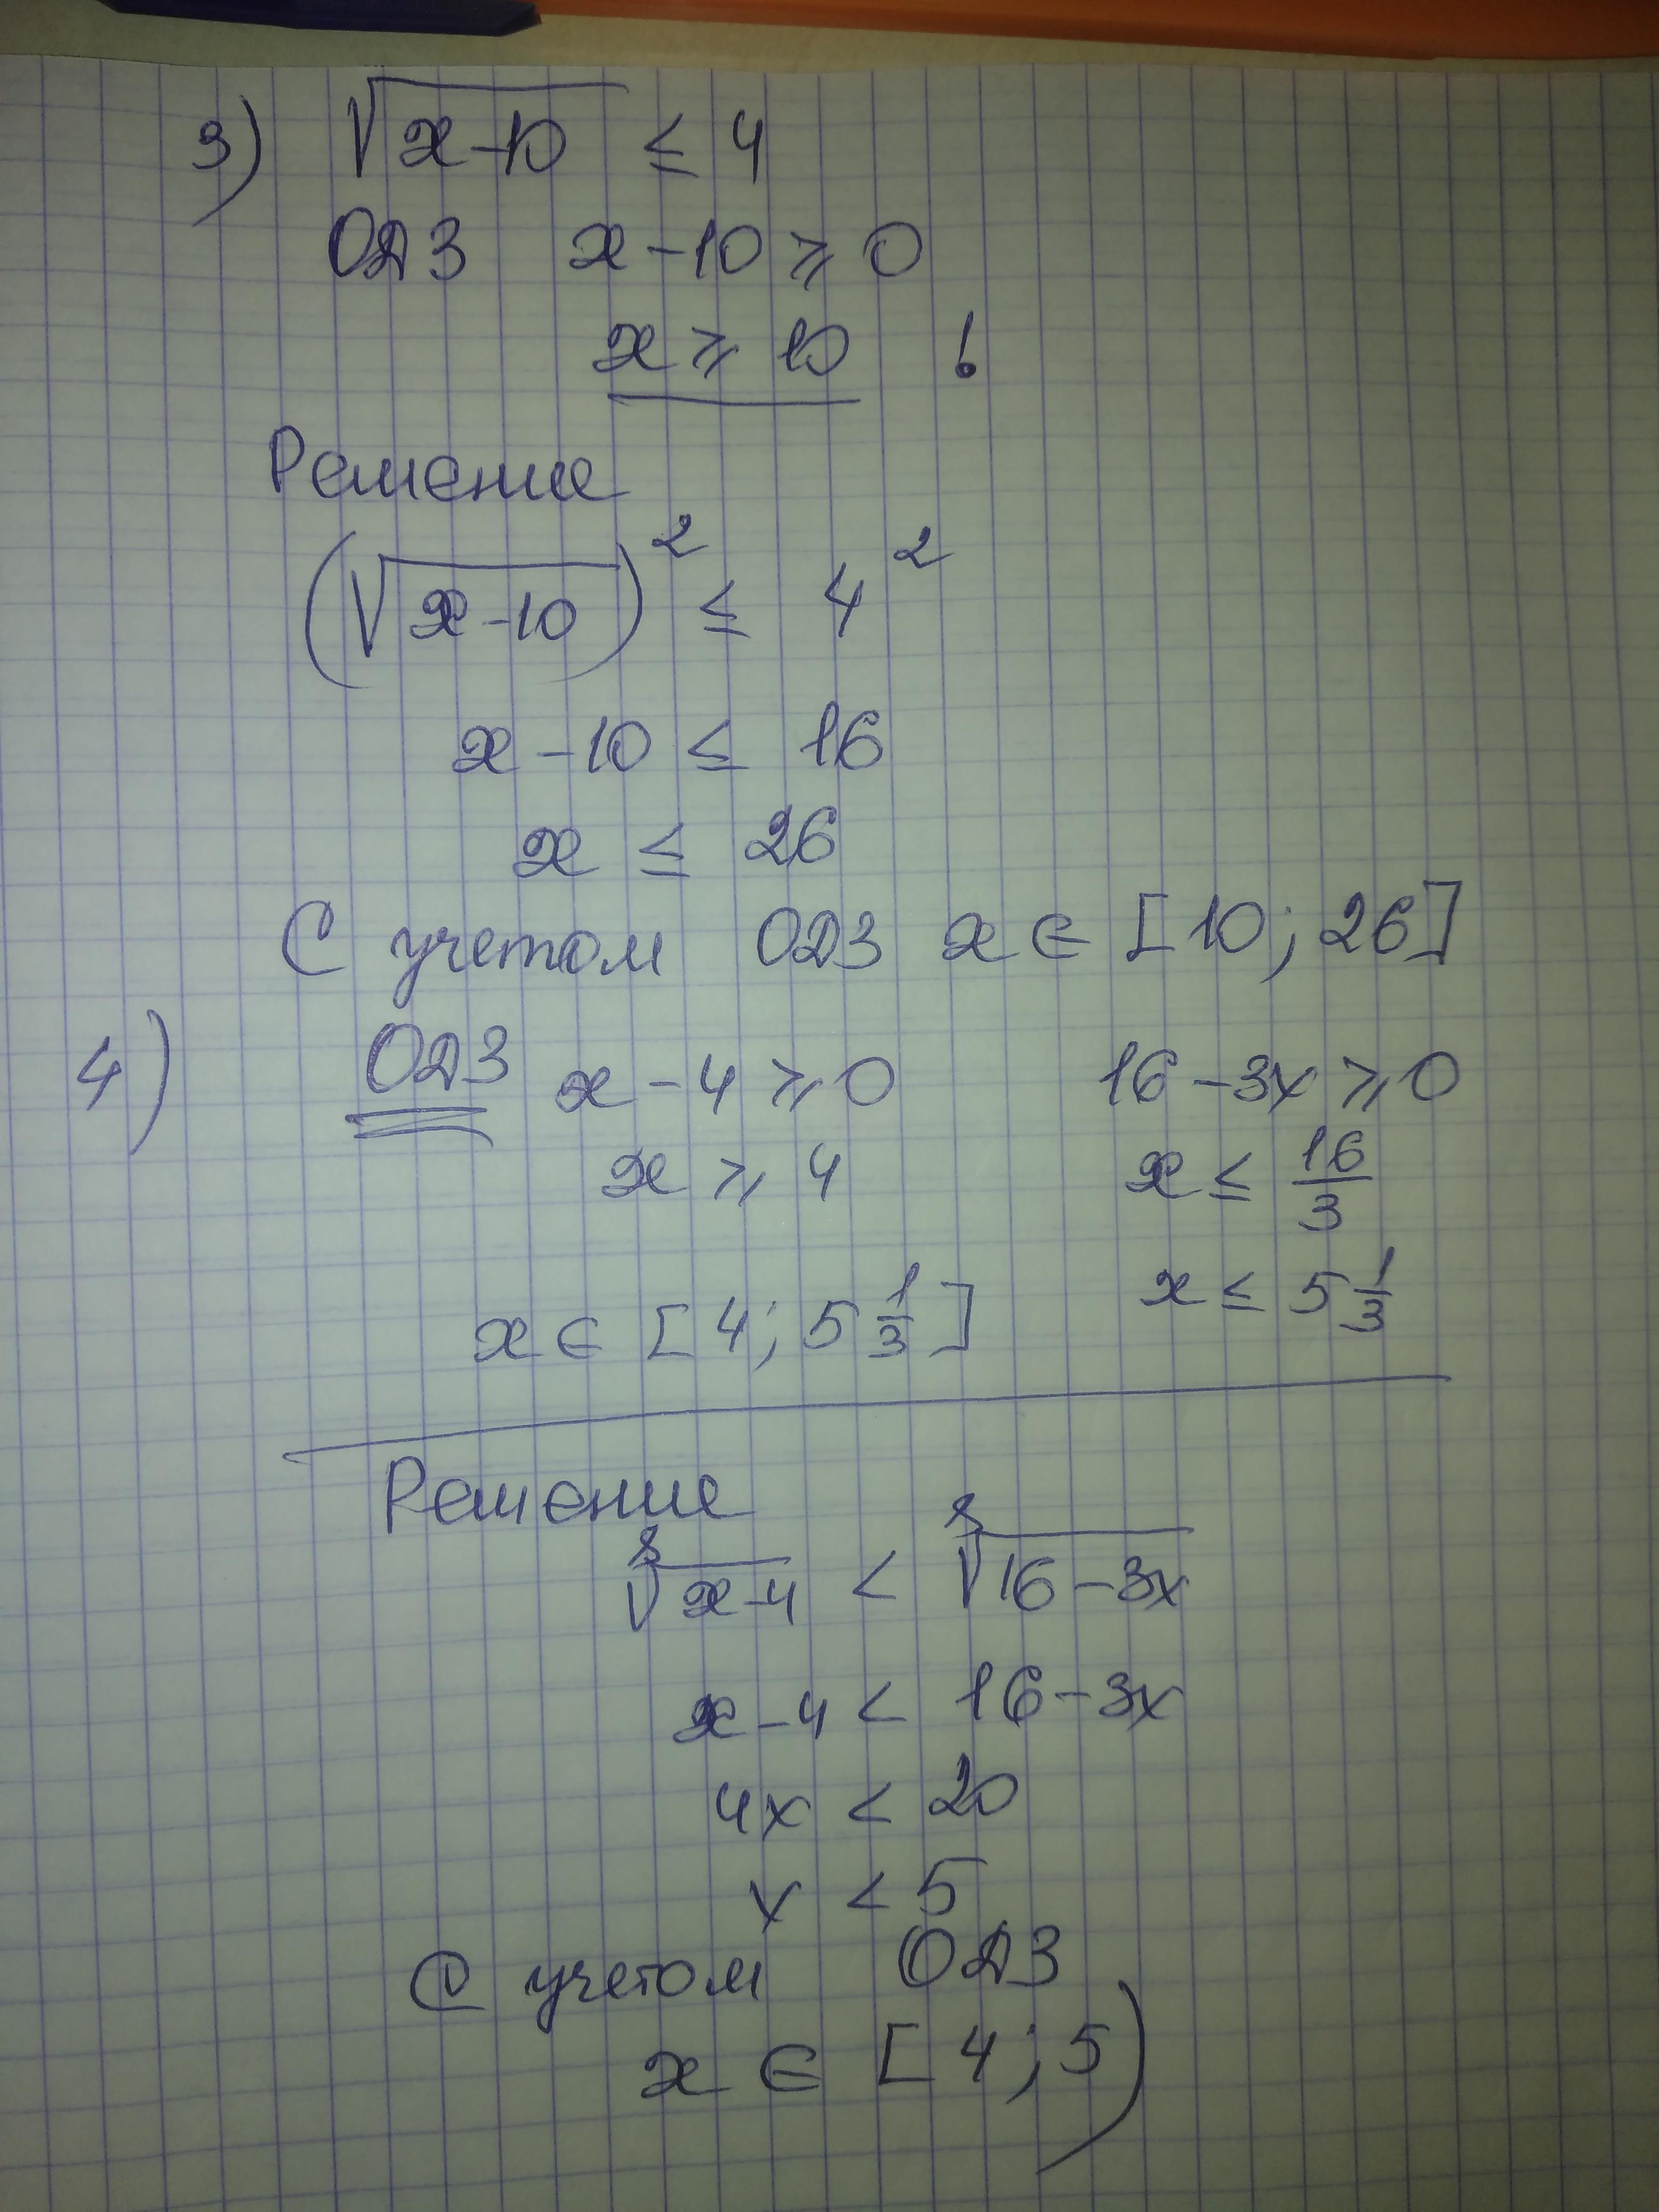 3) √(x-10) ≤ 4
ОДЗ x-10 ≥ 0
x ≥ 10 !
Решение
(√(x-10))² ≤ 4²
x-10 ≤ 16
x ≤ 26
С учетом ОДЗ x ∈ [10; 26]
4) ОДЗ x-4 ≥ 0 16-3x ≥ 0
x ≥ 4 x ≤ 16/3
x ∈ [4; 5 1/3] x ≤ 5 1/3
Решение
⁸√(x-4) < ⁸√(16-3x)
x-4 < 16-3x
4x < 20
x < 5
С учетом ОДЗ
x ∈ [4; 5)